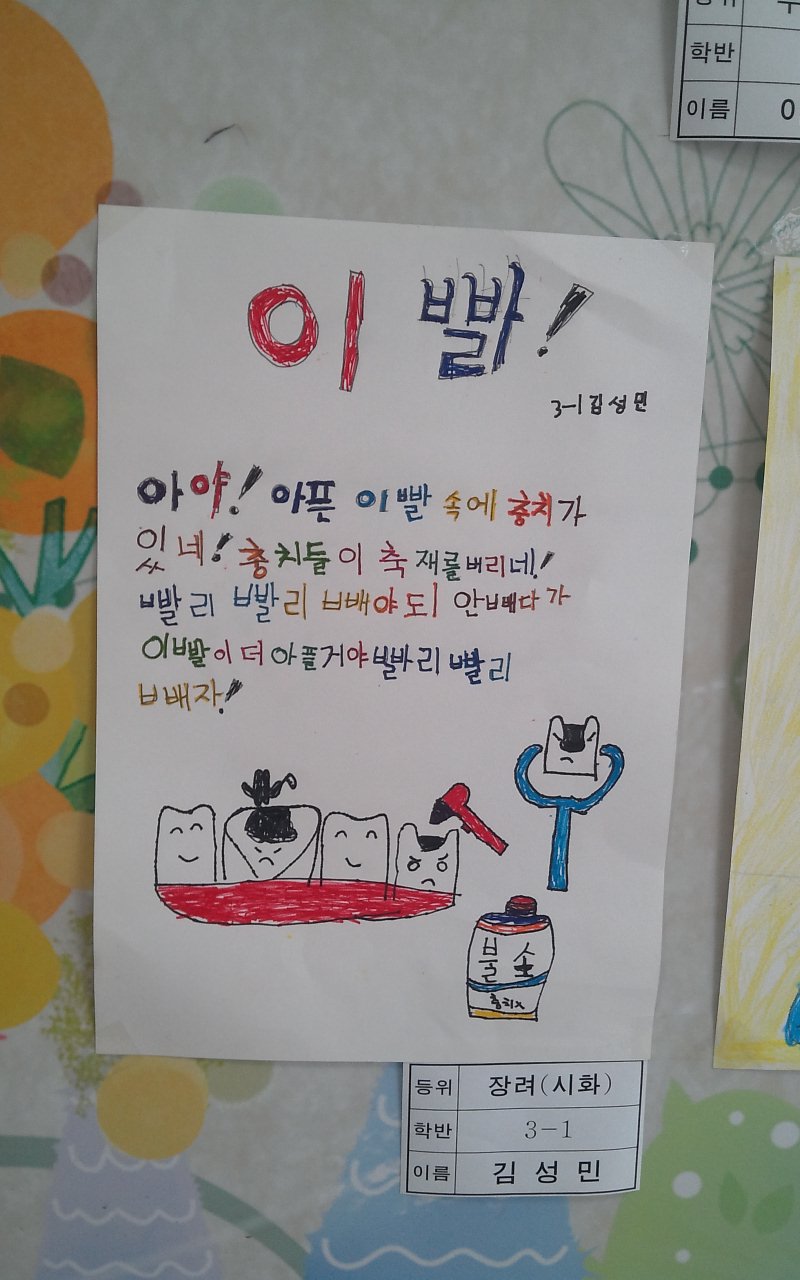 학반
이름
이빨!
3-1 김성민
아야! 아픈 이빨 속에 충치가
있네! 충치들이 축재를버리네!
빨리 빨리 빼야되 안빼다가
이빨이 더 아플거야빨리 빨리
빼자!
불소
충치x
등위 장려(시화)
학반 3-1
이름 김성민